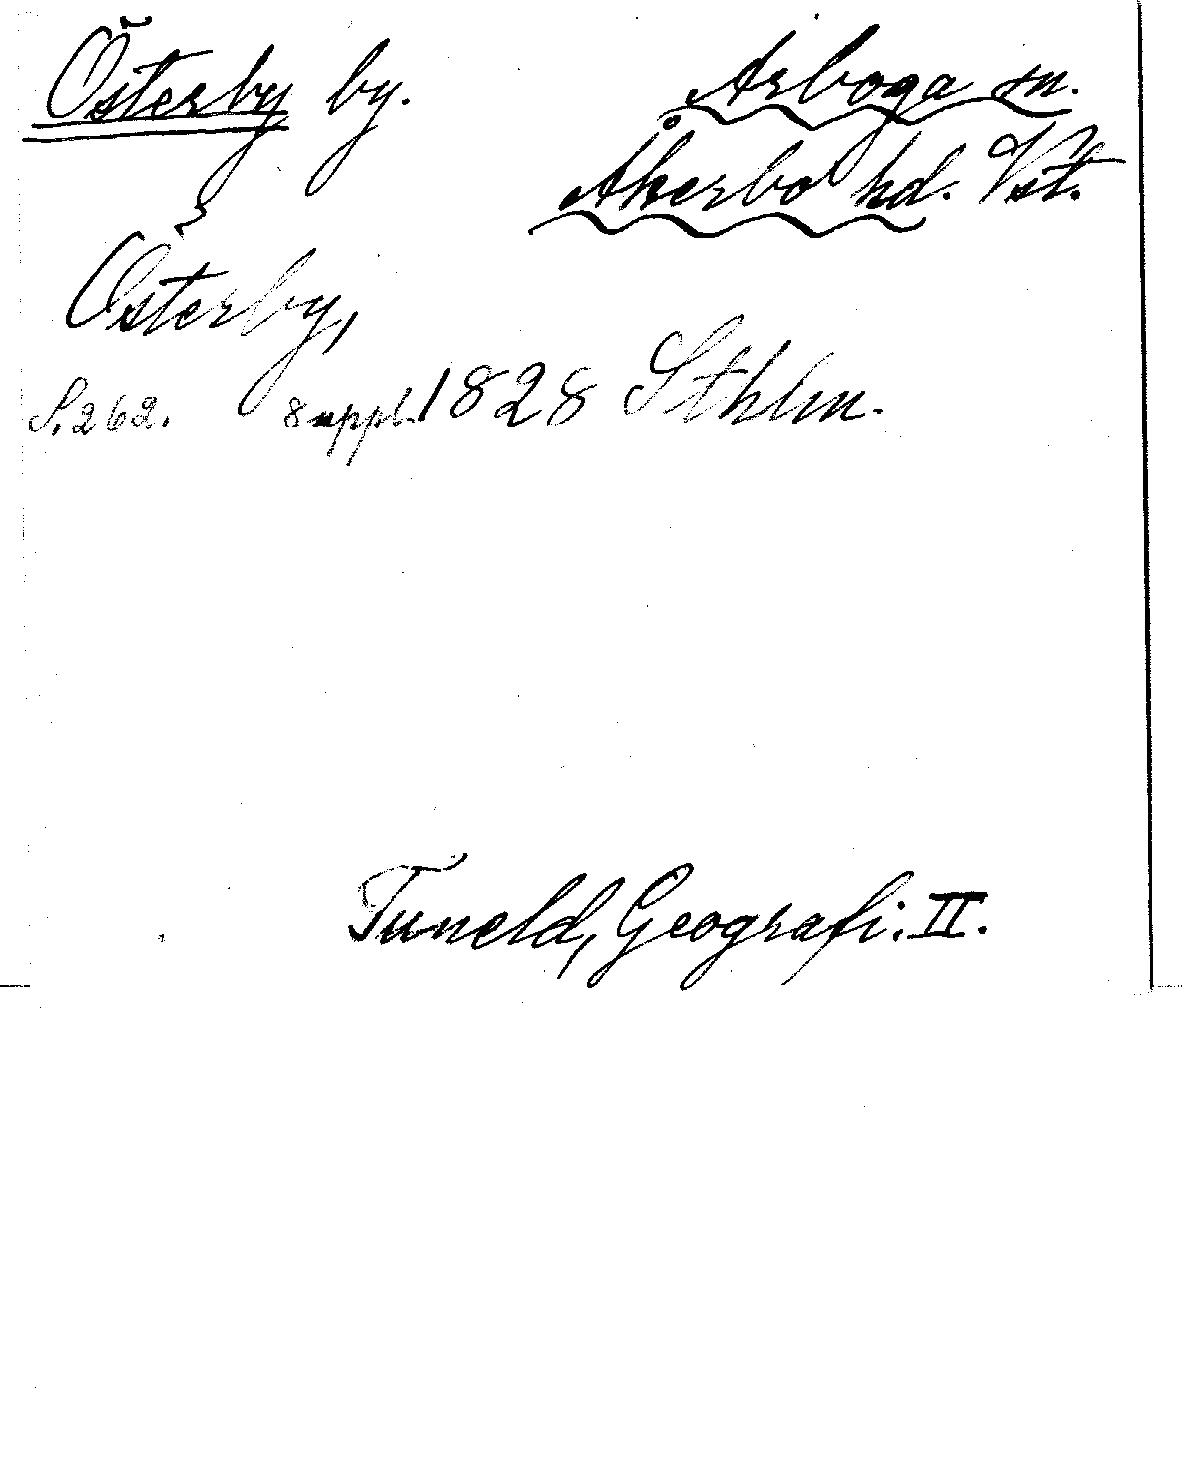 Österby by. Arboga sn.
Åkerbo hd. Vst.
Österby,
S. 262. 8 uppl. 1828 Sthlm.
Tuneld, Geografi. II.